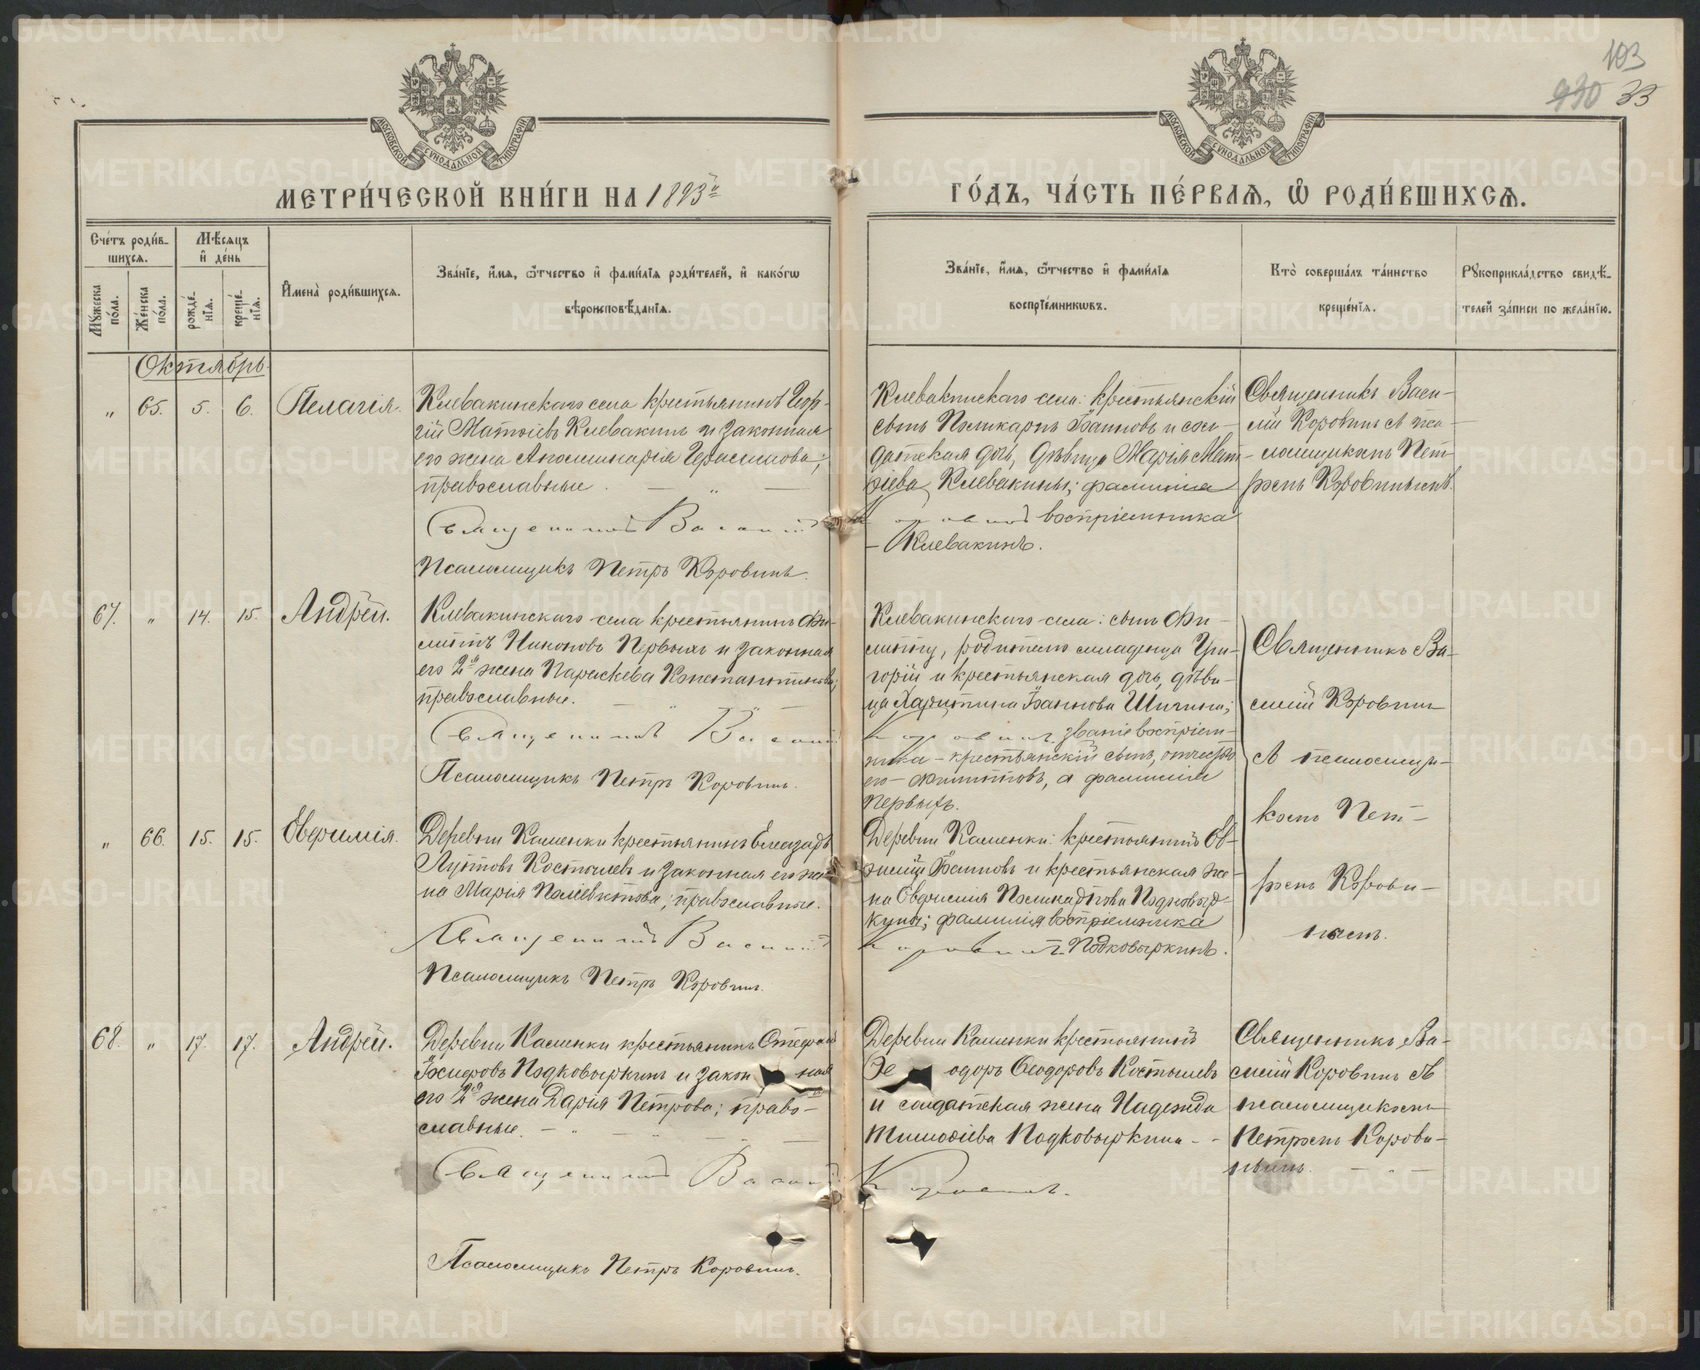 103
930 33
МОСКОВСКОЙ СУНОДАЛЬНОЙ ТИПОГРАФІИ
МОСКОВСКОЙ СУНОДАЛЬНОЙ ТИПОГРАФІИ
МЕТРИ́ЧЕСКОЙ КНИ́ГИ НА 1893й
ГО́ДЪ, ЧА́СТЬ ПЕ́РВАЯ, Ѽ РОДИ́ВШИХСЯ.
Сче́тъ роди́в-
шихся.
Мѣ́сяцъ
и҆ де́нь
Мꙋ́жеска по́ла.
Же́нска по́ла.
рожде́-
нїя.
креще́-
нїя.
И҆мена̀ роди́вшихся.
Зва́нїе, и҆́мя, ѻ҆́тчество и҆ фами́лїя роди́телей, и҆ како́гѡ
вѣроисповѣ́данїя.
Зва́нїе, и҆́мя, ѻ҆́тчество и҆ фами́лїя
воспрїе́мникѡвъ.
Кто̀ соверша́лъ та́инство
креще́нїя.
Рꙋкоприкла́дство свидѣ́-
телей за́писи по жела́нїю.
Октябрь.
„ 65. 5. 6. Пелагія.
Клевакинскаго села крестьянинъ Геор-
гій Матѳіевъ Клевакинъ и законная
его жена Аполлинарія Герасимова;
православные.
Священникъ Василій Коровинъ
Псаломщикъ Петръ Коровинъ.
Клевакинскаго села: крестьянскій
сынъ Поликарпъ Іоанновъ и сол-
датская дочь, дѣвица Марія Мат-
ѳіева Клевакины; фамилія
воспріемника
– Клевакинъ.
Священникъ Васи-
лій Коровинъ съ пса-
ломщикомъ Пет-
ромъ Коровинымъ.
67. „ 14. 15. Андрей.
Клевакинскаго села крестьянинъ Фи-
липпъ Никоновъ Первыхъ и законная
его 2я жена Параскева Константинова;
православные.
Священникъ Василій Коровинъ
Псаломщикъ Петръ Коровинъ.
Клевакинскаго села: сынъ Фи-
липпу, родителю младенца Гри-
горій и крестьянская дочь, дѣви-
ца Харитина Іоаннова Шигина;
званіе воспріем-
ника – крестьянскій сынъ, отчество
его – Филипповъ, а фамилія
Первыхъ.
Священникъ Ва-
силій Коровинъ
съ псаломщи-
комъ Пет-
ромъ Корови-
нымъ.
„ 66. 15. 15. Евфимія.
Деревни Каменки крестьянинъ Елеазаръ
Костылевъ и законная его же-
на Марія Полиевктова; православные.
Священникъ Василій Коровинъ
Псаломщикъ Петръ Коровинъ.
Деревни Каменки: крестьянинъ Ев-
Іоанновъ и крестьянская же-
на Евфимія Подковыр-
кины; фамилія воспріемника
Подковыркинъ.
68. „ 17. 17. Андрей.
Деревни Каменки крестьянинъ Стефанъ
Подковыркинъ и закон ная
его 2я жена Дарія Петрова; право-
славные.
Священникъ Василій Коровинъ.
Псаломщикъ Петръ Коровинъ.
Деревни Каменки крестьянинъ
Ѳе одоръ Ѳеодоровъ Костылевъ
и солдатская жена Надежда
Тимоѳіева Подковыркина
Священникъ Ва-
силій Коровинъ съ
псаломщикомъ
Петромъ Корови-
нымъ.
METRIKI.GASO-URAL.RU